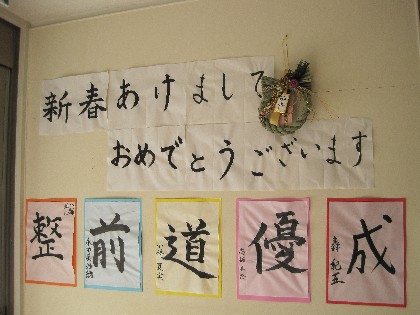 新春あけまして
おめでとうございます
整
前
道
優
成
森 紀五